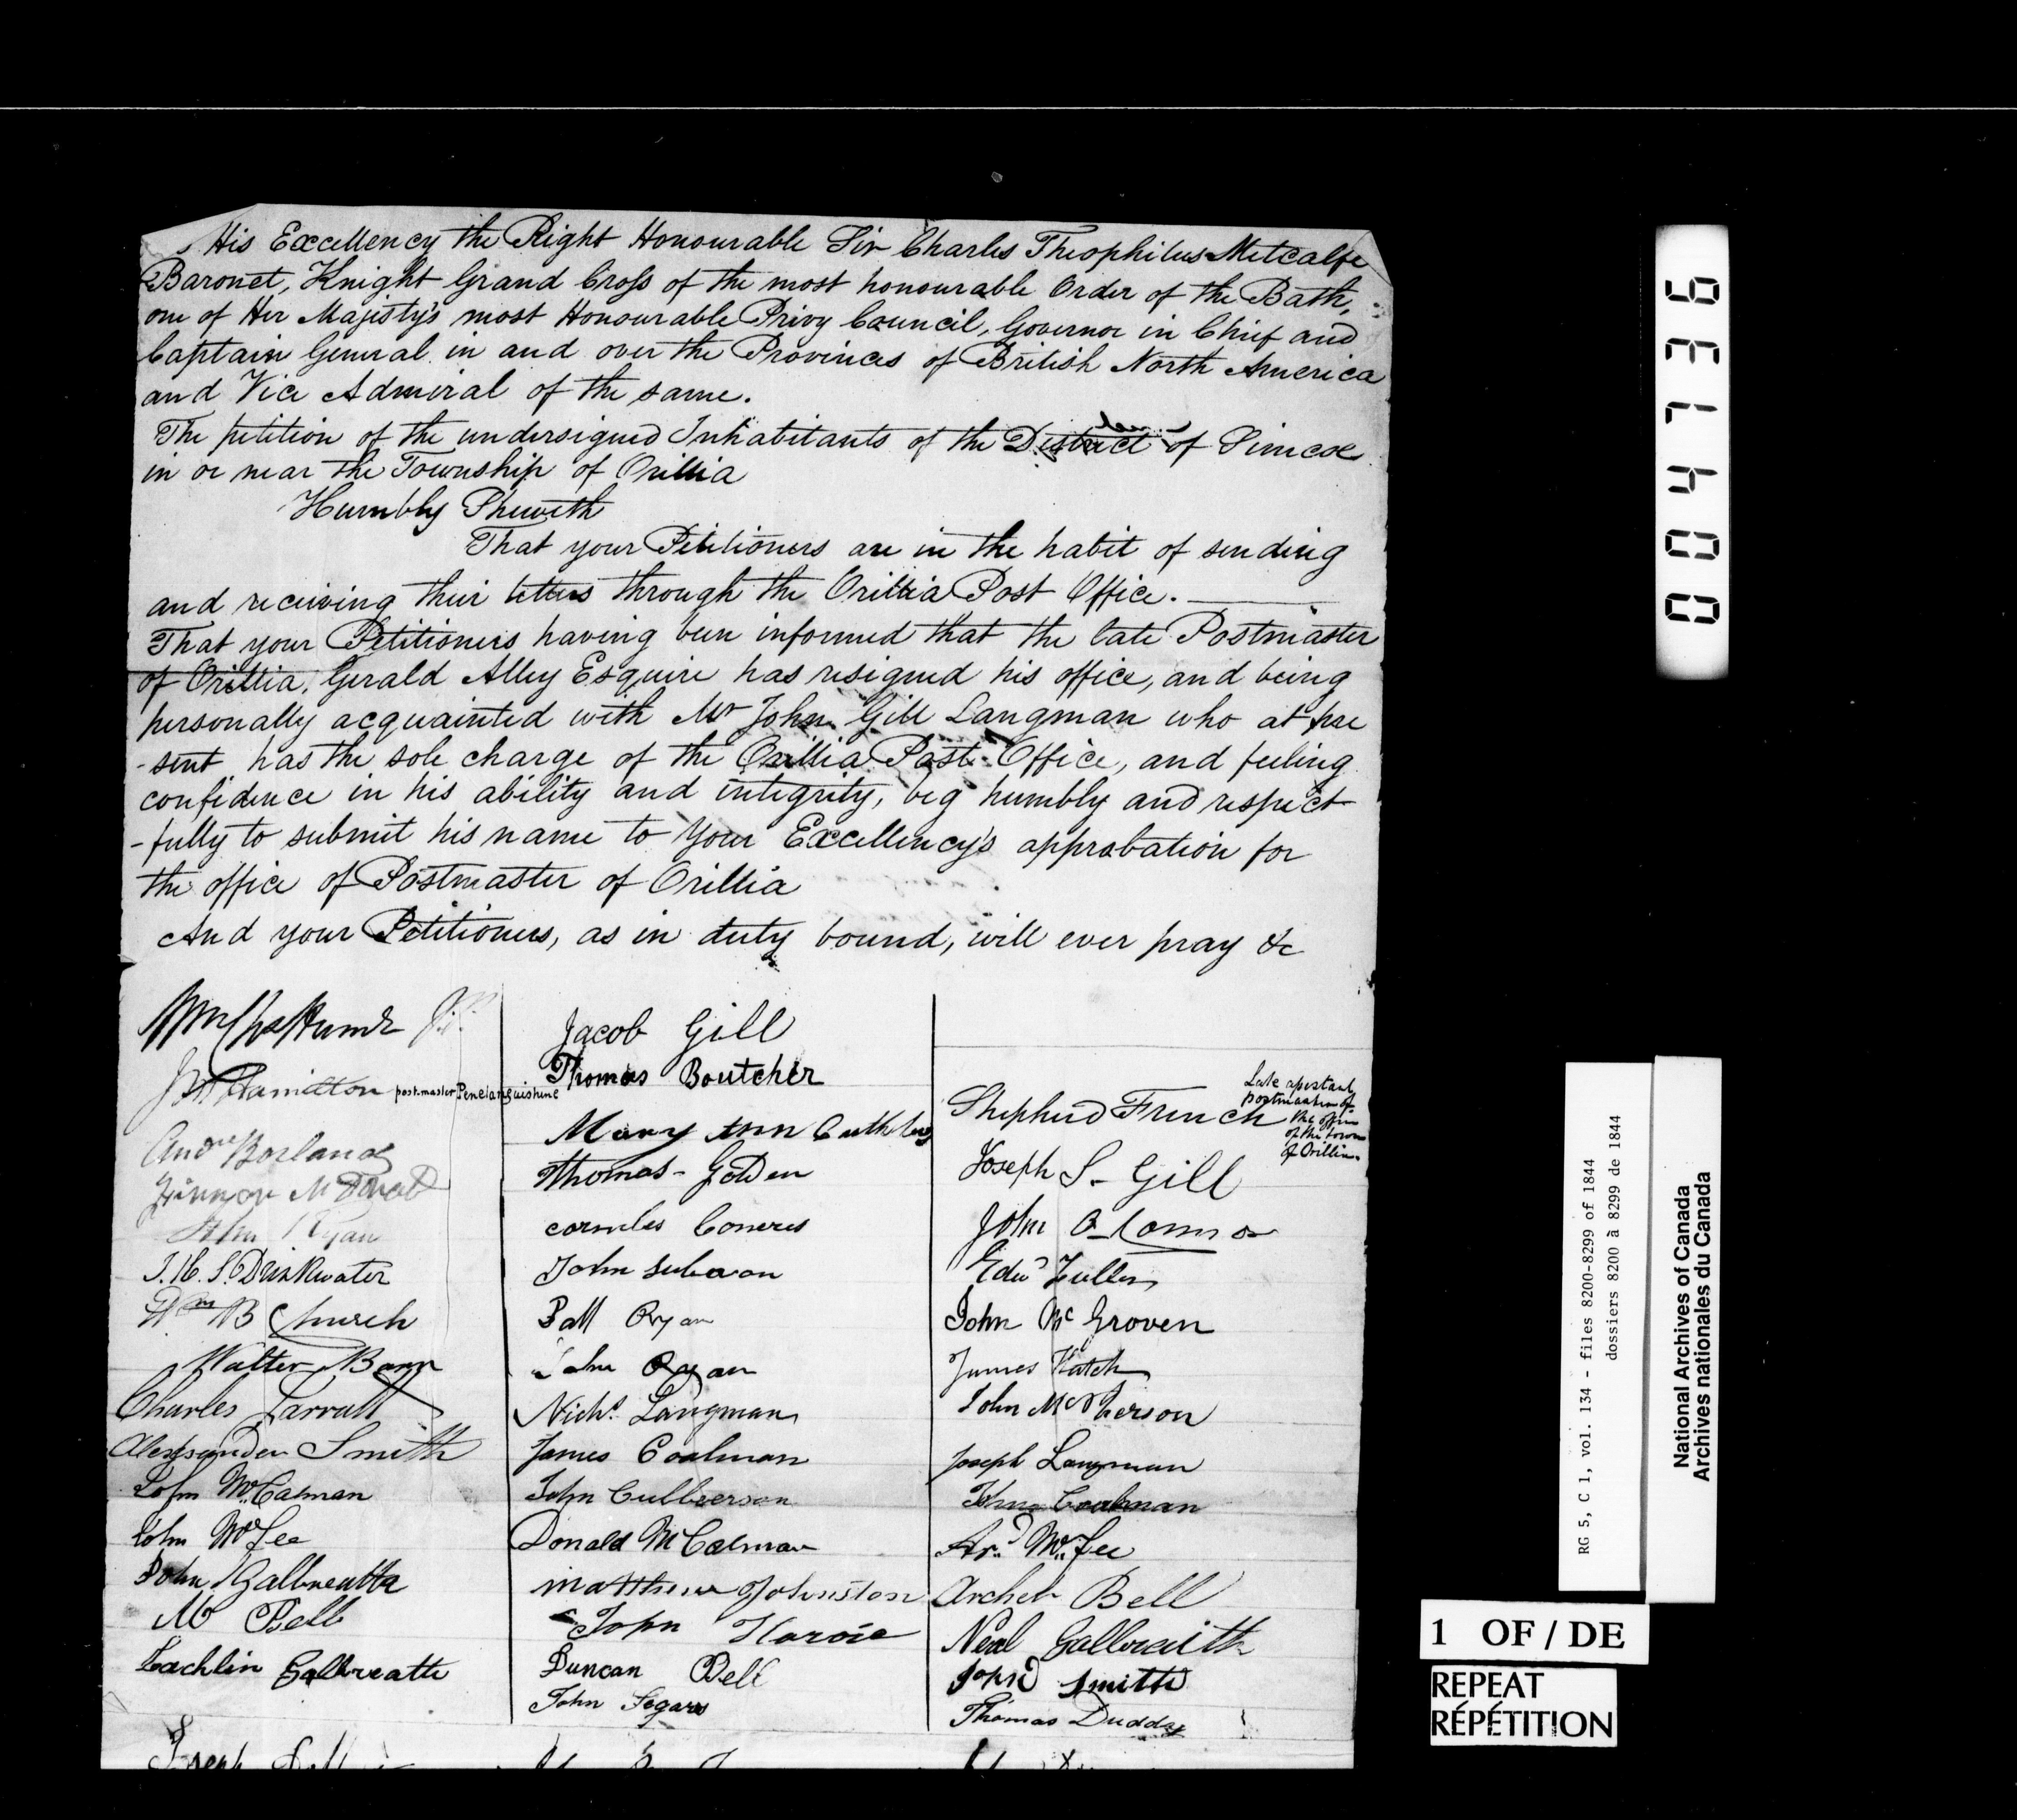 His Excellency the Right Honourable Sir Charles Theophilus Metcalfe
Baronet, Knight Grand Cross of the most honourable Order of the Bath,
one of Her Majesty's most Honourable Privy Council, Governor in Chief and
Captain General in and over the Provinces of British North America
and Vice Admiral of the same.
The petition of the undersigned Inhabitants of the District of Simcoe
in or near the Township of Orillia
Humbly Sheweth
That your Petitioners are in the habit of sending
and receiving their letters through the Orillia Post Office.
That your Petitioners having been informed that the late Postmaster
of Orillia, Gerald Alley Esquire has resigned his office, and being
personally acquainted with Mr John Gill Langman who at pre
-sent has the sole charge of the Orillia Post Office, and feeling
confidence in his ability and integrity, beg humbly and respect
-fully to submit his name to Your Excellency's approbation for
the office of Postmaster of Orillia
And your Petitioners, as in duty bound, will ever pray &c
Hamilton postmaster Penetanguishine
Andw Borland
McDonald
John Ryan
J. H. S. Drinkwater
Wm B Church
Walter
Charles Jarratt
Alexsander Smith
John McCalman
John McFee
John Galbreath
M Bell
Lachlin Galbreath
Joseph
Jacob Gill
Thomas Boutcher
Mary Ann
Thomas Golden
John
Patt Ryan
John Ryan
Nichs Langman
James Coalman
John Culberson
Donald McCalman
Matthew Johnston
John
Duncan Bell
John Segars
Shepherd French
Late
postmaster of
the office
of the town
of Orillia.
Joseph S. Gill
John O Connor
Edwd Fuller
John McGroven
James Hatch
John McPherson
Joseph Langman
John Coalman
Ard McFee
Archeb Bell
Neal Galbraith
John Smith
Thomas Duddy
004736
RG 5, C 1, vol. 134 - files 8200-8299 of 1844
dossiers 8200 à 8299 de 1844
National Archives of Canada
Archives nationales du Canada
1 OF / DE
REPEAT
RÉPÉTITION